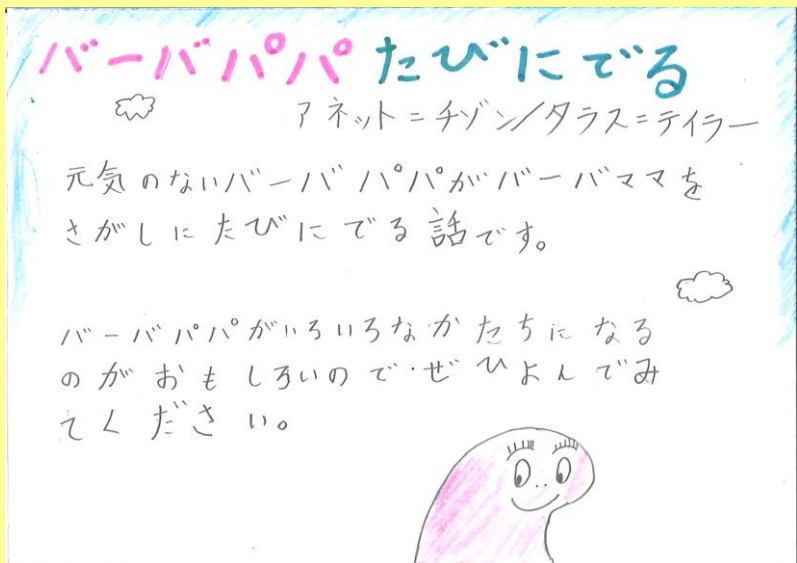 バーバパパたびにでる
アネット=チゾン/タラス=テイラー
元気のないバーバパパがバーバママを
さがしにたびにでる話です。
バーバパパがいろいろなかたちになる
のがおもしろいのでぜひよんでみ
てください。